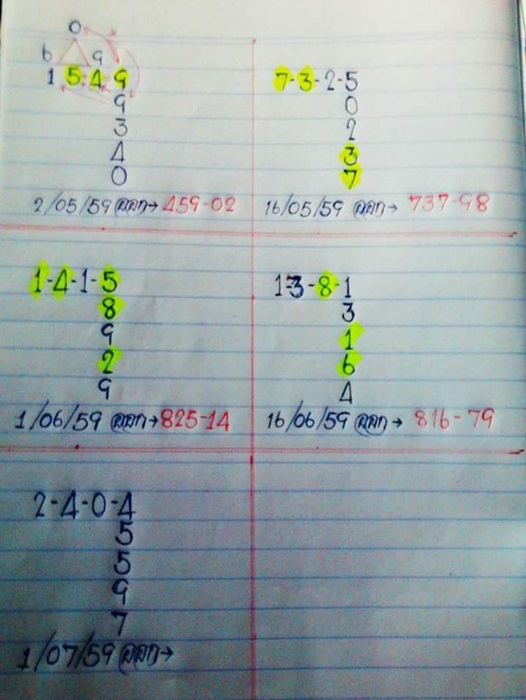 0
6 9
1 5 4 9
9
3
4
0
2/05/59 ออก→ 459-02
7-3-2-5
0
2
3
7
16/05/59 ออก→ 737-98
1-4-1-5
8
9
2
9
1/06/59 ออก→825-14
1-3-8-1
3
1
6
4
16/06/59 ออก→ 816-79
2-4-0-4
5
5
9
7
1/07/59 ออก→